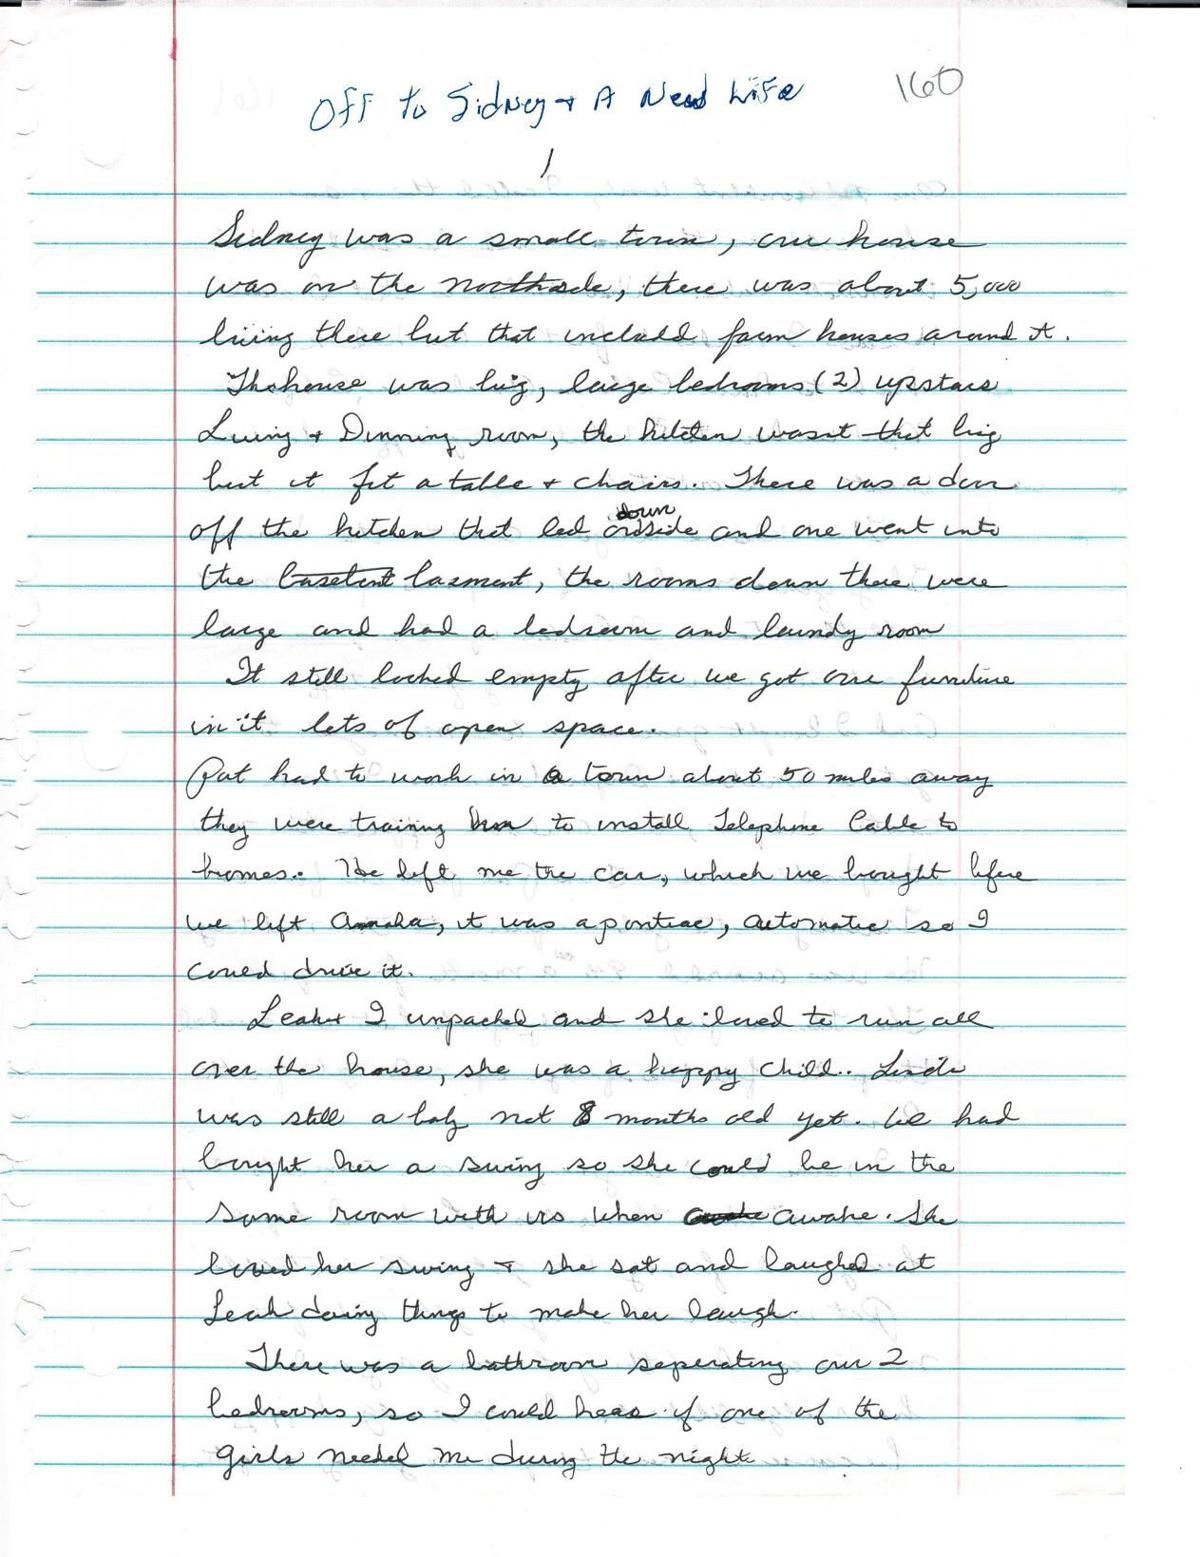 Off to Sidney + A New Life 160
1
Sidney was a small town, our house
was on the northside, there was about 5,000
living there but that includd farm houses around it.
The house was big, large bedrooms (2) upstars
Living + Dinning room, the kitchen wasnt that big
but it fit a table + chairs. There was a door
down
off the kitchen that led outside and one went into
the basetent basment, the rooms down there were
large and had a bedroom and laundy room
It still looked empty after we got our furniture
in it lots of open space.
Pat had to work in a town about 50 miles away
they were training him to install Telephone Cable to
homes. He left me the car, which we bought before
we left Omaha, it was a pontiac, automatic so I
could drive it.
Leah + I unpacked and she loved to run all
over the house, she was a happy child.. Linda
was still a baby not 8 months old yet. We had
bought her a swing so she could be in the
same room with us when awake. She
loved her swing + she sat and laughed at
Leah doing things to make her laugh.
There was a bathroom seperating our 2
bedrooms, so I could hear if one of the
girls needed me during the night